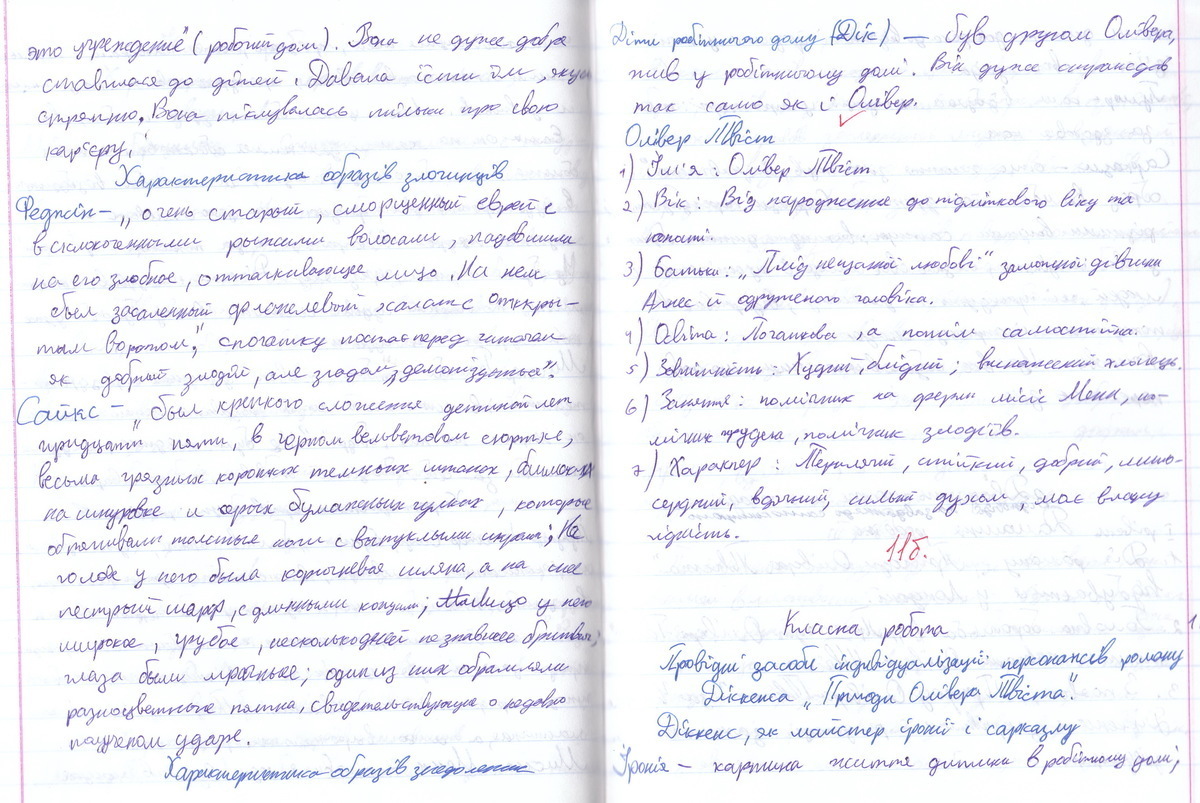 это учреждение" (робочий дом). Вона не дуже добре
ставилася до дітей. Давала їсти їм, якусь
стряпню. Вона піклувалась тільки про свою
кар'єру.
Характеристика образів злочинців
Феджін – „очень старый, сморщенный еврей с
всклокоченными рыжими волосами, падавшими
на его злобное, отталкивающее лицо. На нем
был засаленный фланелевый халат с откры-
тым воротом", спочатку постає перед читачем
як добрий злодій, але згодом „демонізується".
Сайкс – "был крепкого сложения детиной лет
тридцати пяти, в черном вельветовом сюртке,
весьма грязных коротких темных штанах, башмаках
на шнуровке и серых бумажных чулках, которые
обтягивали толстые ноги с выпуклыми икрами; На
голове у него была коричневая шляпа, а на шее
пестрый шарф, с длинными концами; Лицо у него
широкое, грубое, несколько дней не знавшее бритвы;
глаза были мрачные; один из них обрамляли
разноцветные пятна, свидетельствующие о недавно
полученом ударе.
Характеристика образів
Діти робітничого дому (Дік) – був другом Олівера,
жив у робітничому домі. Він дуже страждав
так само як і Олівер.
Олівер Твіст
1) Ім'я: Олівер Твіст
2) Вік: Від народження до підліткового віку та
юнаті.
3) Батьки: „Плід нещасної любові" заможної дівчини
Агнес й одруженого чоловіка.
4) Освіта: Початкова, а потім самостійна.
5) Зовнішність: Худий, блідий; виснажений хлопець.
6) Заняття: помічник на фермі місіс Менн, по-
мічник трудера, помічник злодіїв.
7) Характер: Терплячий, стійкий, добрий, мило-
сердний, вдячний, сильний духом, має власну
гідність.
11б.
Класна робота
Провідні засоби індивідуалізації персонажів роману
Діккенса „Пригоди Олівера Твіста".
Діккенс, як майстер іронії і сарказму
Іронія – картина життя дитини в робітному домі;